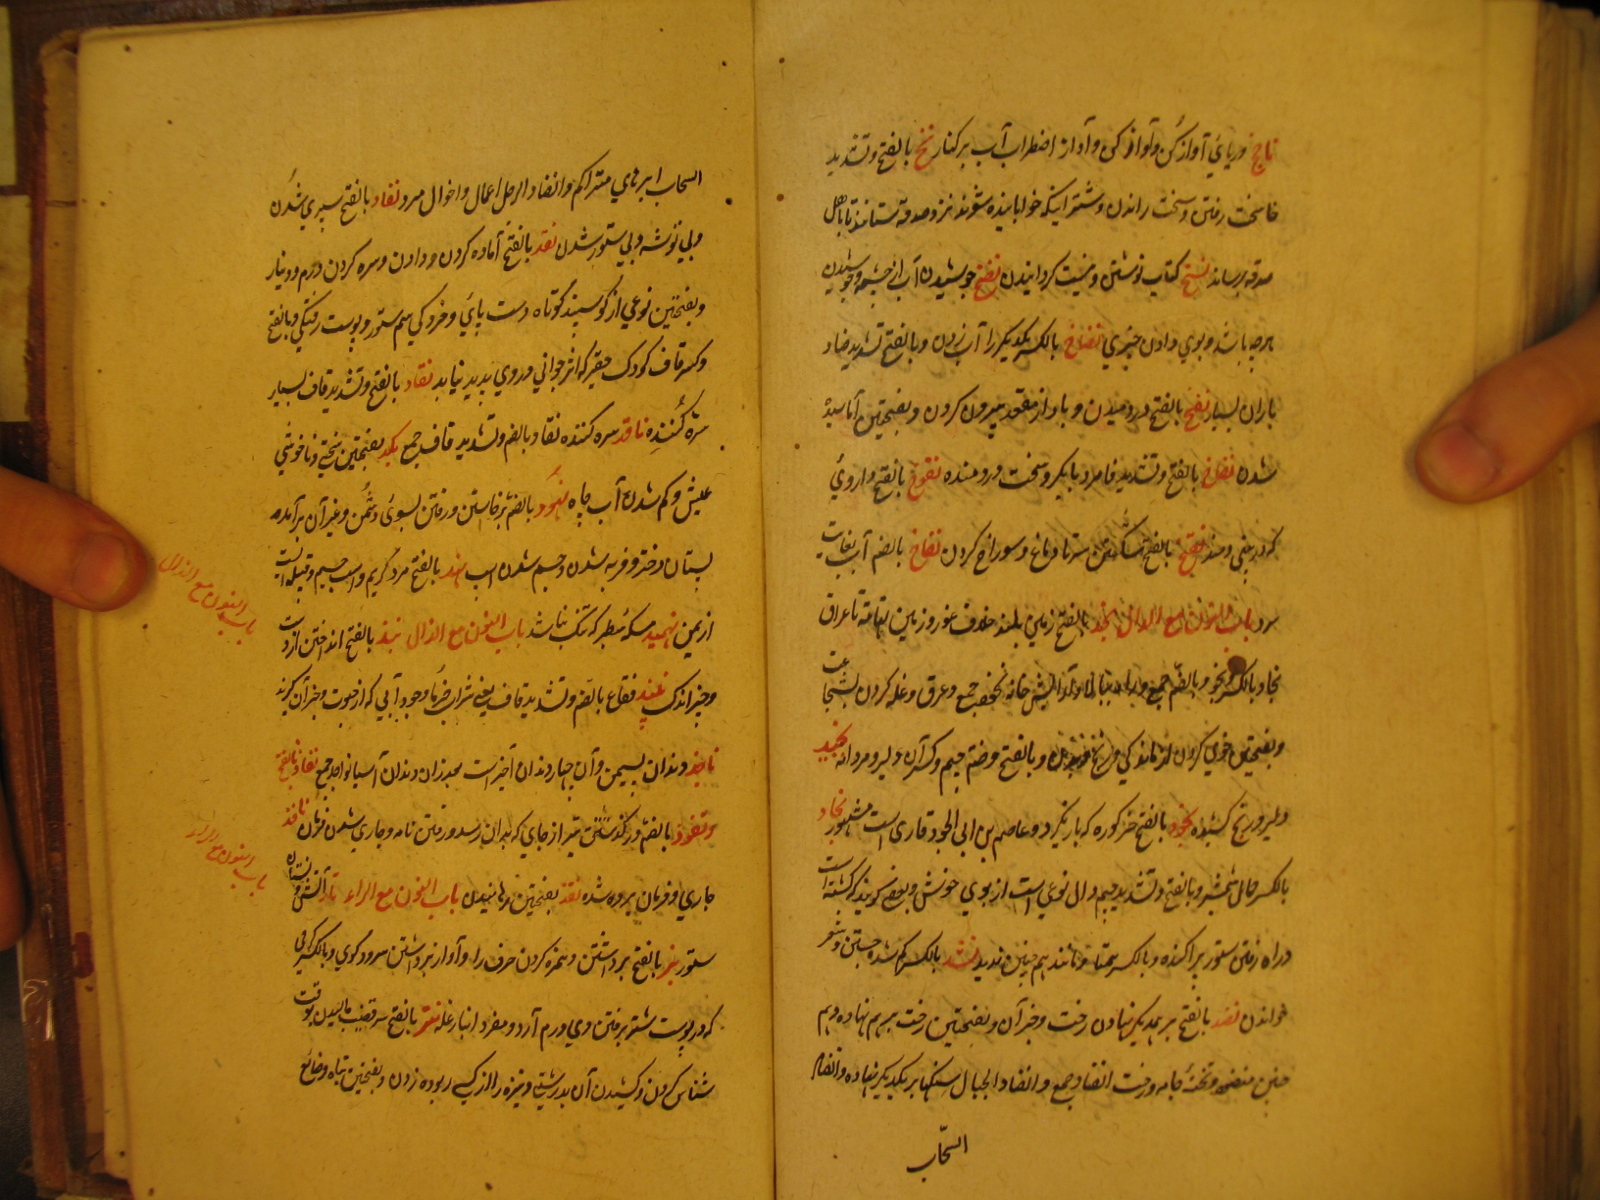 دریای آواز کن و آواز کن و آواز اضطراب آب بر کنار نخ بالفتح و تشدید
خا سخت رفتن و سخت راندن و شترانیکه خوابانیده شوند نزد صدقه ستاننده تا باهل
صدقه رساند نسخ کتاب نوشتن و نیست گردانیدن نضخ جوشیدن آب از چشمه و جوشیدن
هرچه باشد و بوی دادن چیزی نضاخ بالکسر یکدیگر را آب زدن و بالفتح تشدید ضاد
باران بسیار نفخ بالفتح در دمیدن و باد از مقعد بیرون کردن و بفتحتین آماسیده
شدن نفاخ بالفتح و تشدید فا مرد با تکبر و سخت در دمنده نقوخ بالفتح داروی
که در بینی دمند نقخ بالفتح شکستن سر تا دماغ و سوراخ کردن نقاخ بالضم آب بغایت
سرد باب النون مع الدال نجد بالفتح زمین بلند خلاف غور و زمین تهامه تا عراق
نجاد بالکسر و نجود بالضم جمع و غلبه کردن بشجاعت
و بفتحتین خوی کردن از ماندگی و رنج و بالفتح و ضم جیم و کسر آن دلیر و مردانه نجید
دلیر و رنج کشیده نجود بالفتح خر کوره که بار نگیرد و عاصم بن ابی النجود قاری است مشهور نجاد
بالکسر حمایل شمشیر و بالفتح و تشدید جیم ند بالفتح و تشدید دال نوعی است از بوی خوش و بعضی گویند که گشته است
در راه رفتن ستور پراکنده و بالکسر همتا و مانند هم چنین ندید نشد بالکسر گم شده جستن و شعر
خواندن نضد بالفتح بر یکدیگر نهادن رخت و جز آن و بفتحتین رخت بر هم نهاده و هم
چنین منضد و تخته جامه و رخت انضاد جمع و انضاد الجبال سنگها بر یکدیگر نهاده و انضاد
السحاب
السحاب ابرهای متراکم و انضاد الرجل اعمال و اخوال مرد نفاد بالفتح سپری شدن
و بی توشه و بی ستور شدن نقد بالفتح آماده کردن و دادن و سره کردن درم و دینار
و بفتحتین نوعی از گوسپند کوتاه دست و پای و خردگی سم ستور و پوست رفتگی و بالفتح
و کسر قاف کودک حقیر که اثر جوانی در وی پدید نیاید نقاد بالفتح و تشدید قاف بسیار
سره کننده ناقد سره کننده نقاد بالضم و تشدید قاف جمع نکد بفتحتین سختی و ناخوشی
عیش و کم شدن آب چاه نهود بالضم برخاستن و رفتن بسوی دشمن و غیر آن برآمدن
پستان دختر و فربه شدن و جسیم شدن اسب نهد بالفتح مرد کریم و اسب جسیم و قبیله ایست
از یمن نهید مسکه سطبر که تنک نباشد باب النون مع الذال نبذ بالفتح انداختن از دست
و چیز اندک نبیذ فقاع بالضم و تشدید قاف یعنی شراب خرما و جو و آبی که از حبوب و جز آن گیرند
ناجذ دندان پسین و آن چهار دندان آخر است بعد از آن دندان آسیا نواجذ جمع نفاذ بالفتح
و نفوذ بالضم در گذشتن تیر از جای که بدان رسد و رفتن نامه و جاری شدن فرمان نافذ
جاری و فرمان برده شده نقذ بفتحتین رهانیدن باب النون مع الراء نار آتش و نشان
ستور نبر بالفتح برداشتن و همزه کردن حرف را و آواز برداشتن سرود گوی و بالکسر
که در پوست شتر برفتن وی ورم آرد و مفرد انبار غله نتر بالفتح
شناس کردن و کشیدن آن بدرشتی و نیزه را از کسی ربوده زدن و بفتحتین تباه و ضایع
باب النون مع الذال
باب النون مع الراء